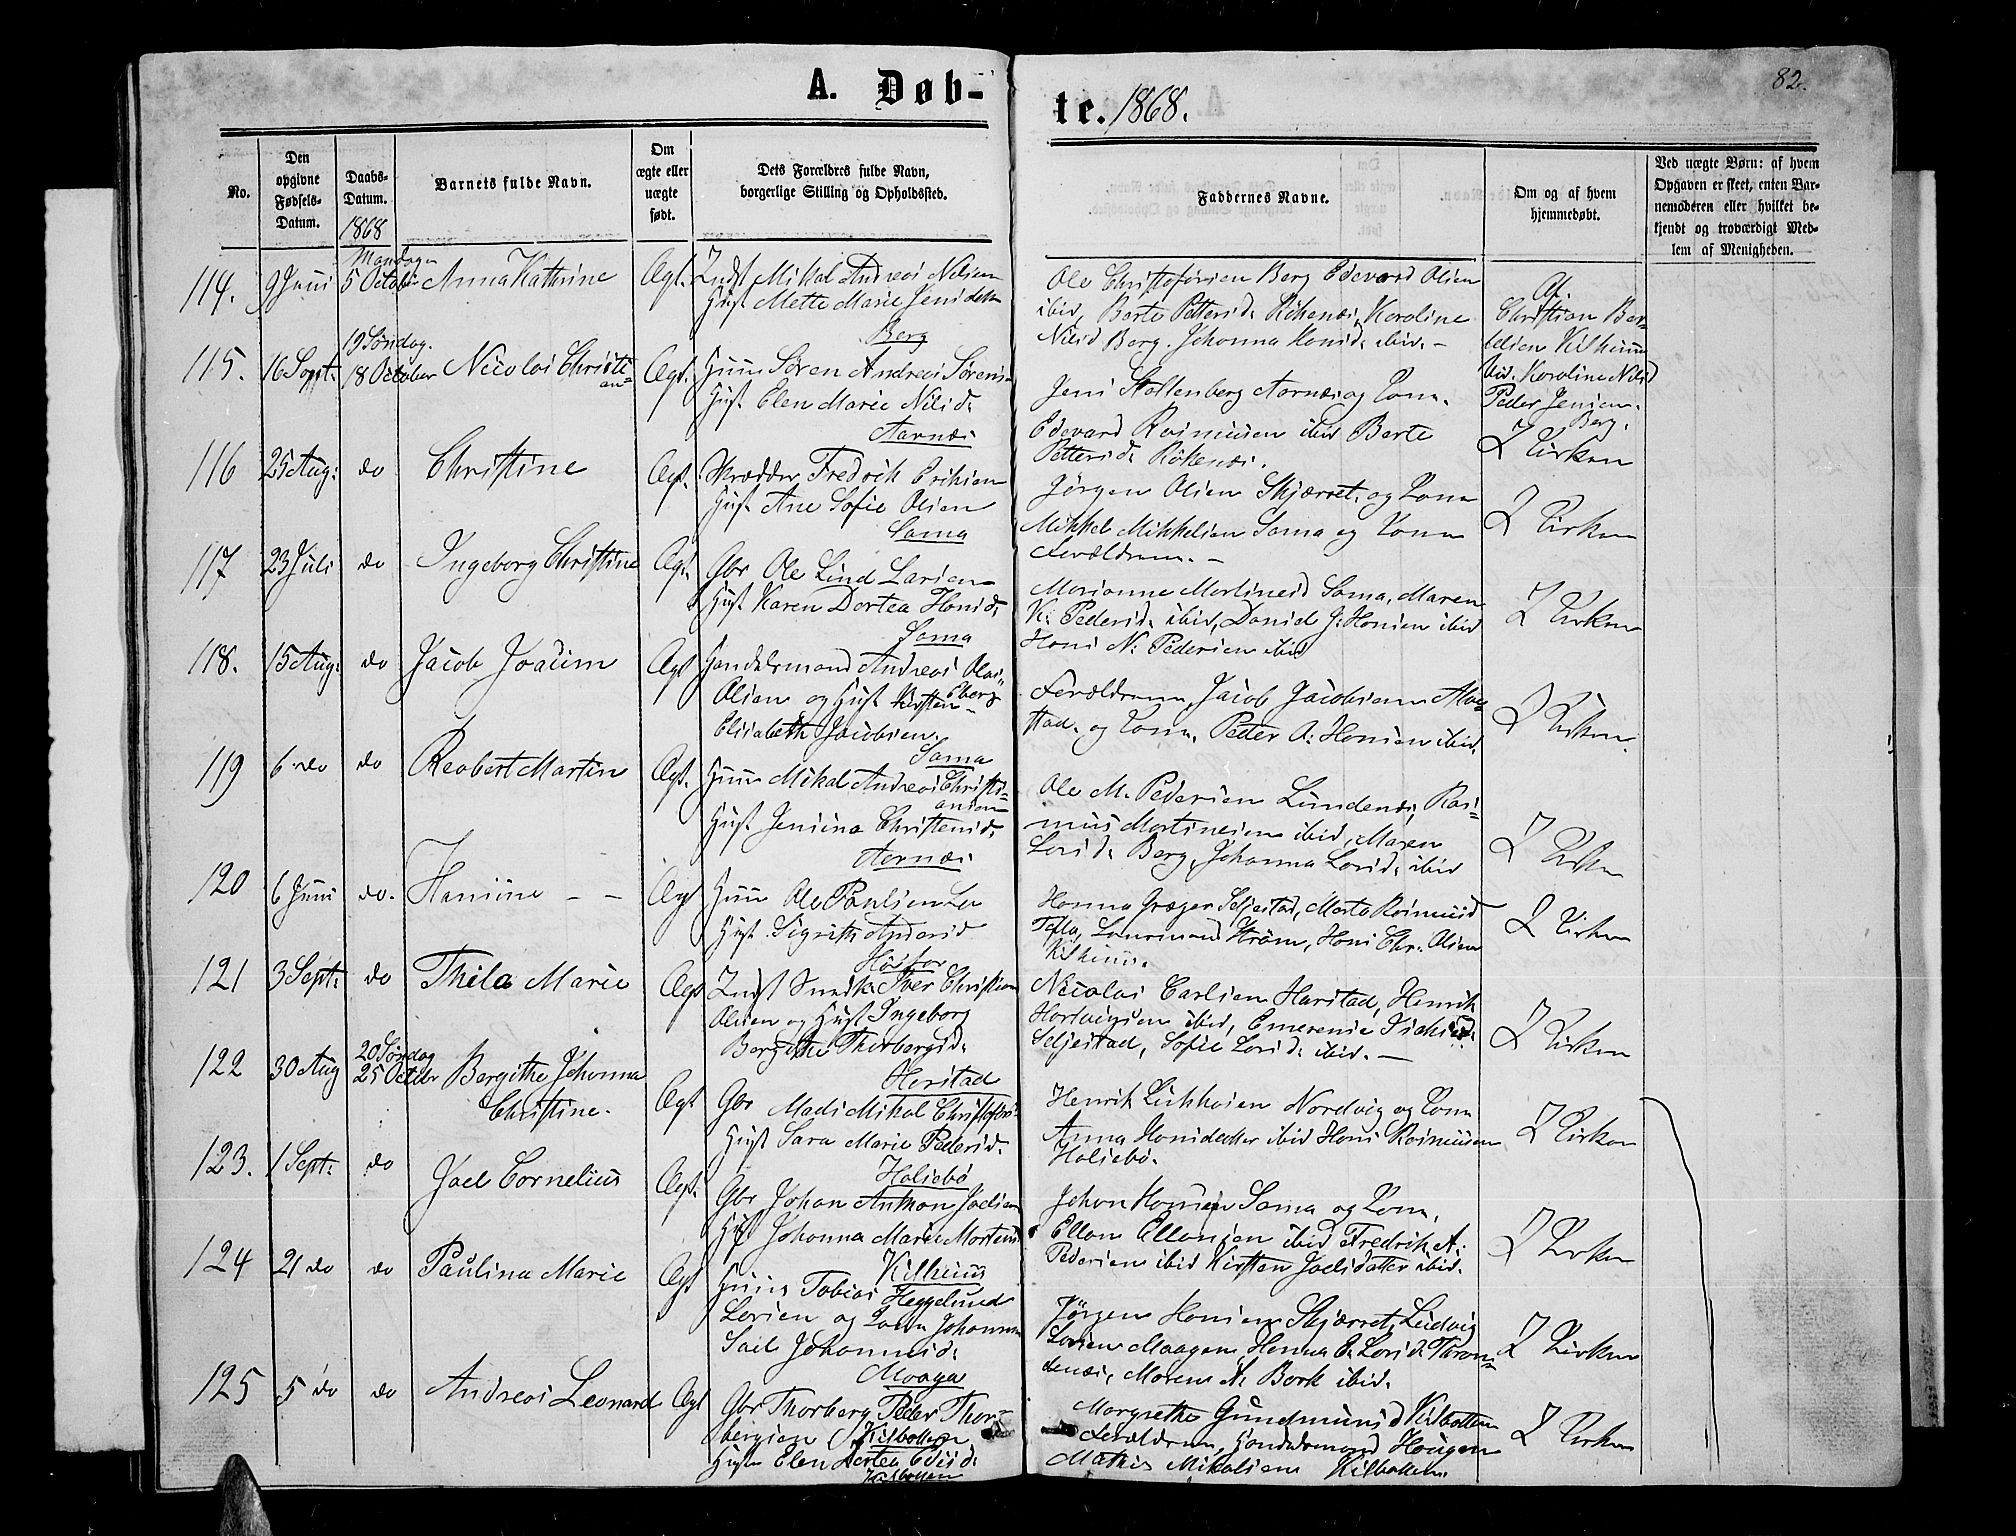 82.
A. Døb-
te. 1868.
No.
Den
opgivne
Fødsels-
Datum.
Daabs-
Datum.
1868
Barnets fulde Navn.
Om
ægte eller
uægte
født.
Dets Forældres fulde Navn,
borgerlige Stilling og Opholdssted.
Faddernes Navne.
Om og af hvem
hjemmedøbt.
Ved uægte Børn: af hvem
Opgaven er skeet, enten Bar-
nemoderen eller hvilket be-
kjendt og troværdigt Med-
lem af Menigheden.
114. 9 Juni
Mandag
5 October
Anna Kathrine
Ægt.
Indst Mikal Andreas Nilsen
Hust Mette Marie Jensdatter
Berg
Ole Christofersen Berg Edevard Olsen
ibid, Berte Pettersd. Rökenæs, Karoline
Nilsd Berg. Johanna Hansd. ibid. –
Af
Christian Ber-
telsen Kilhuus
ibid. Karoline Nilsd
Peder Jensen.
Berg.
115. 16 Sept.
19 Søndag.
18 October
Nicolai Christi
an=
Ægt.
Huus Søren Andreas Sørens.
Hust Elen Marie Nilsd.
Aarnæs
Jens Stoltenberg Aarnæs og Kone.
Edevard Rasmusen ibid Berte
Pettersd. Rökenæs.
I Kirken
116 25 Aug: do
Christine
Ægt.
Skrædder Fredrik Eriksen
Hust Ane Sofie Olsen
Sama
Jörgen Olsen Skjærret, og Kone
Mikkel Mikkelsen Sama og Kone
Forældrene. –
I Kirken
117 23 Juli do
Ingeborg Christine
Ægt.
Gbr Ole Lind Larsen
Hust Karen Dortea Hansd.
Sama
Marianne Martinesd Sama, Maren
K. Pedersd. ibid, Daniel J. Hansen ibid
Hans N. Pedersen ibid
I Kirken
118. 15 Aug: do
Jacob Joacim
Ægt
Handelsmand Andreas Olai
Olsen og Hust Kirsten
Elisabeth Jacobsen.
Sama
Forældrene, Jacob Jacobsen
og Kone, Peder A. Hansen ibid.
I Kirken
119 6 do do
Reobert Martin
Ægt.
Huus Mikal Andreas Christi=
ansen
Hust Jensina Christensd.
Aarnæs
Ole M. Pedersen Lundenæs, Ras=
mus Martinesen ibid, Maren
Larsd. Berg, Johanna Larsd. ibid
I Kirken
120 6 Juni do.
Hansine – –
Ægt
Huus Ole Paulsen
Hust Sigrith Andersd
Hanna Græger Seljestad, Marta Rasmusd
Laurmand Ström, Hans Chr. Olsen
Kilhuus.
I Kirken
121 3 Sept: do
Thila Marie
Ægt
Indst Iver Christian
Olsen og Hust Ingeborg
Bergithe Thorbergsd.
Harstad
Nicolai Carlsen Harstad, Henrik
Hartvigsen ibid, Emerense
Seljestad, Sofie Larsd. ibid. –
I Kirken
122 30 Aug
20 Søndag
25 Octobr
Bergithe Johanna
Christine.
Ægt
Gbr Mads Mikal Christofers.
Hust Sara Marie Pedersd.
Halsebø
Henrik Nordvig og Kone
Anna Hansdatter ibid Hans Rasmusen
Halsebø.
I Kirken
123. 1 Sept: do
Joel Cornelius
Ægt.
Gbr Johan Anthon Joelsen
Hust Johanna Marie
Kilhuus
Johan Hansen Sama og Kone,
Ellan Ellansen ibid Fredrik A.
Pedersen ibid Kirsten Joelsdatter ibid.
I Kirken
124 21 do do
Paulina Marie
Ægt
Huus Tobias Heggelund
Larsen og Kone Johanna
Johannesd.
Maaga
Jörgen Hansen Skjærret, Ludvig
Larsen Maagen, Hanna P. Larsd. Thron=
denæs, Maren N. Bork ibid.
I Kirken
125 5 do do
Andreas Leonard
Ægt
Gbr Thorberg Peder Thor=
bergsen Kilbotten
Hust Elen Dortea
Kilbotten
Margrethe Gundmunsd Kilbotten
Forældrene, Handelsmand Haugen
Mathis Mikalsen Kilbotten.
I Kirken